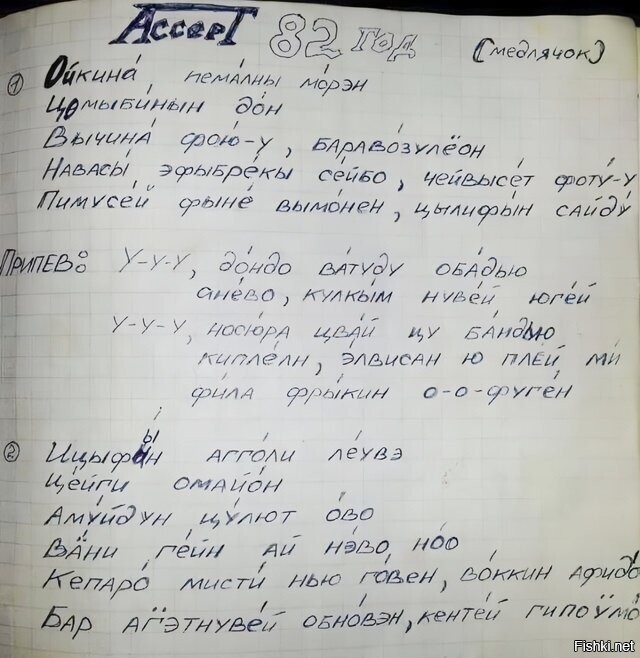 Accept 82 год (медлячок)
1 Ойкина́, пема́лны мо́рэн
Цомыби́нын до́н
Вычина́ фою́-у, барово́зулёон
Навасы́ эфыбре́кы се́йбо, чейвысе́т фоту́-у
Пимусе́й фыне́ вымо́нен, цылифы́н сайду́
Припев: У-у-у, до́ндо ва́туду оба́дью
ане́во, кулкы́м нуве́й юге́й
У-у-у, носю́ра цва́й цу ба́ндью
кипле́лн, э́лвисан ю пле́й ми́
фи́ла фры́кин о-о-фуге́н
2 Ицыфы́н агго́ли ле́увэ
Це́йги омайо́н
Аму́йдун цу́лют о́во
Ва́ни ге́йн ай нэ́во, но́о
Кепаро́ мисти́ нью го́вен, во́ккин афидо́
Бар агэтнуве́й обно́вэн, кенте́й гипоумо́
Fishki.net